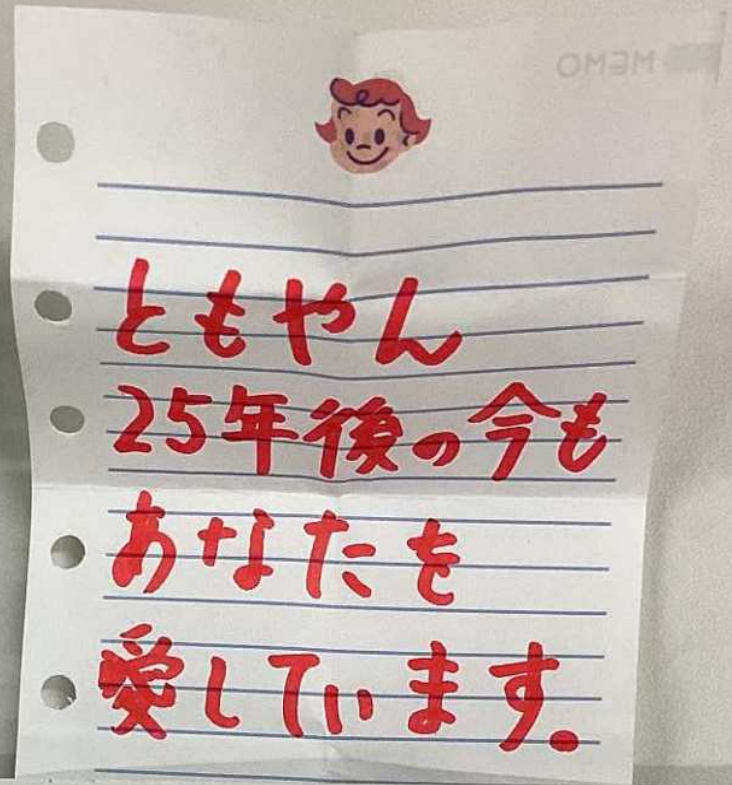 MEMO
ともやん
25年後の今も
あなたを
愛しています。